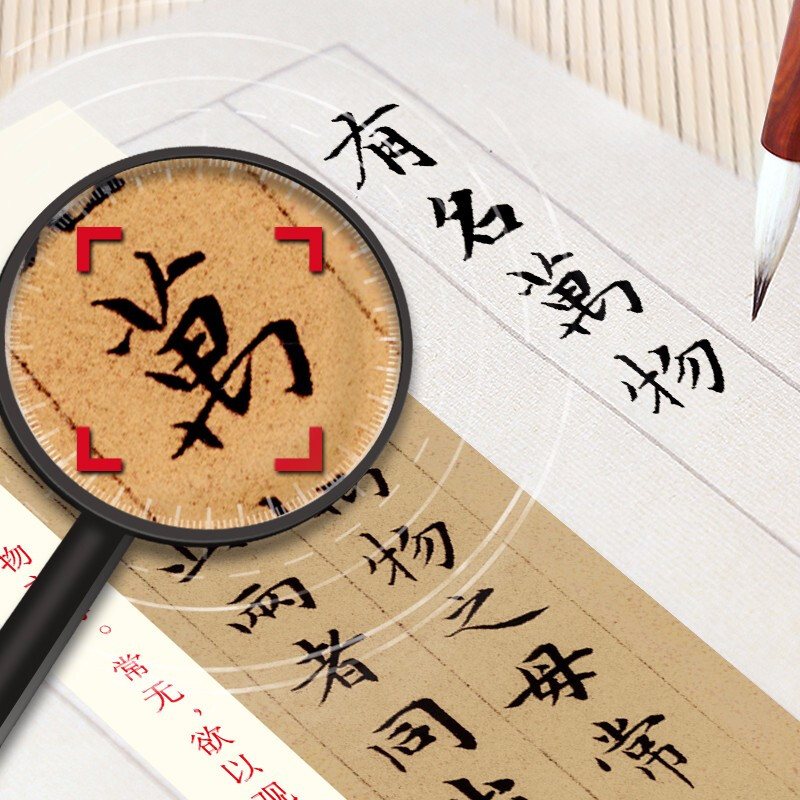 有名萬物
萬
物之母常
兩者同
物
。常无，欲以观